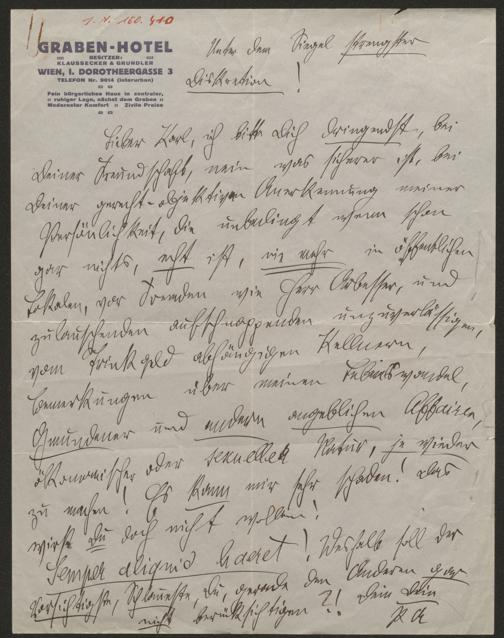 I. N. 160.410
GRABEN-HOTEL
BESITZER:
KLAUSSECKER & GRUNDLER
WIEN, I. DOROTHEERGASSE 3
TELEFON Nr. 9014 (interurban)
Fein bürgerliches Haus in zentraler,
ruhiger Lage, nächst dem Graben
Modernster Komfort Zivile Preise
Unter dem Siegel strengster
Diskretion!
Lieber Karl, ich bitte Dich dringendst, bei
Deiner Freundschaft, nein was sicherer ist, bei
Deiner gerecht-objektiven Anerkennung meiner
Persönlichkeit, die unbedingt wenn schon
gar nichts, echt ist, nie mehr in öffentlichen
Lokalen, vor Fremden wie Herr Arbesser, und
zulauschenden aufschnappenden unzuverlässigen,
vom Trinkgeld abhängigen Kellnern,
Bemerkungen über meinen Lebenswandel,
Gmundener und andern angeblichen Affairen,
ökonomischer oder sexueller Natur, je wieder
zu machen! Es kann mir sehr schaden! Das
wirst Du doch nicht wollen!
Semper aliquid haeret! Deshalb soll der
Vorsichtigste, Schlaueste, Du, gerade den Anderen gar
nicht berücksichtigen?! Dein Dein
P A